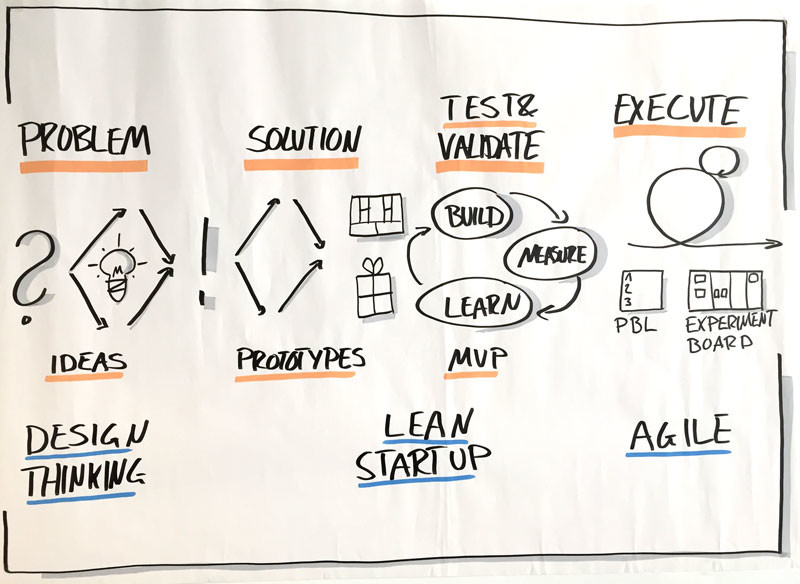 PROBLEM
SOLUTION
TEST&
VALIDATE
EXECUTE
?
!
BUILD
MEASURE
LEARN
1
2
3
PBL
EXPERIMENT
BOARD
IDEAS
PROTOTYPES
MVP
DESIGN
THINKING
LEAN
STARTUP
AGILE